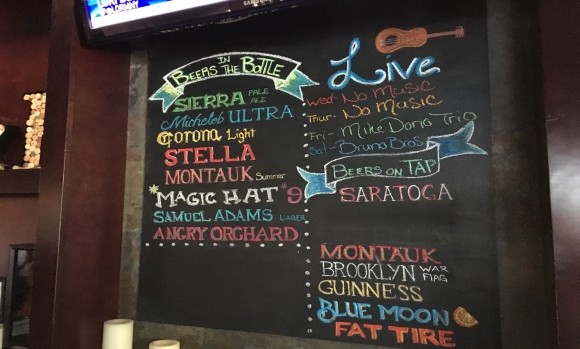 SAMSUNG
BEERS IN THE BOTTLE
SIERRA PALE ALE
Micheleb ULTRA
Corona Light
STELLA
MONTAUK Summer
*MAGIC HAT #9
SAMUEL ADAMS LAGER
ANGRY ORCHARD
Live
Wed- No Music
Thur- No Music
Fri- Mike Dorio Trio
Sat- Bruno Bros.
BEERS ON TAP
SARATOGA
MONTAUK
BROOKLYN WAR FLAG
GUINNESS
BLUE MOON
FAT TIRE